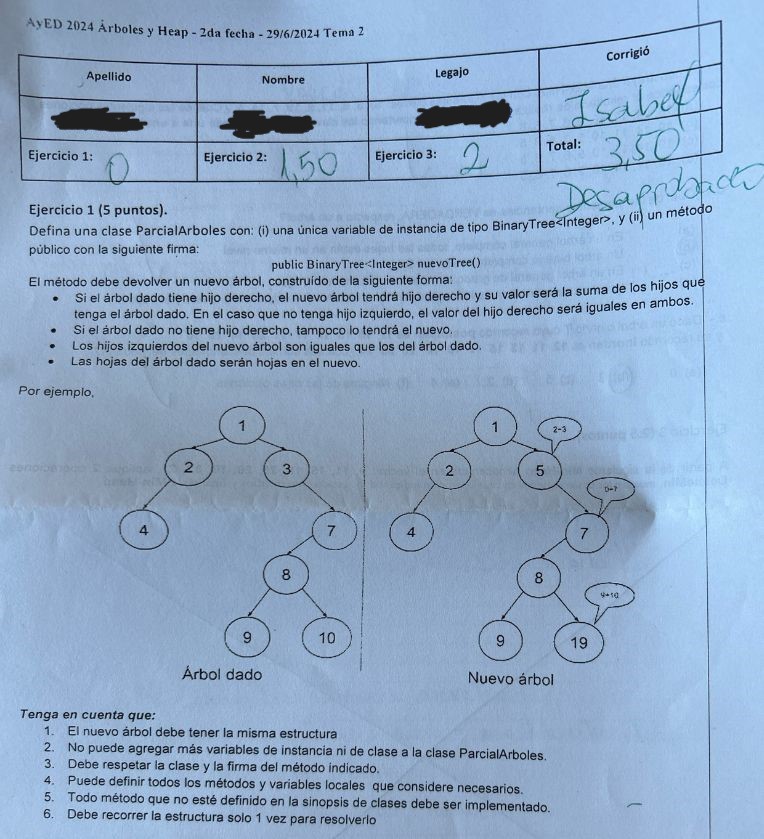 AyED 2024 Árboles y Heap - 2da fecha - 29/6/2024 Tema 2
Apellido Nombre Legajo Corrigió
Isabel
Ejercicio 1: 0 Ejercicio 2: 1,50 Ejercicio 3: 2 Total: 3,50
Desaprobado
Ejercicio 1 (5 puntos).
Defina una clase ParcialArboles con: (i) una única variable de instancia de tipo BinaryTree<Integer>, y (ii) un método
público con la siguiente firma:
public BinaryTree<Integer> nuevoTree()
El método debe devolver un nuevo árbol, construído de la siguiente forma:
• Si el árbol dado tiene hijo derecho, el nuevo árbol tendrá hijo derecho y su valor será la suma de los hijos que
tenga el árbol dado. En el caso que no tenga hijo izquierdo, el valor del hijo derecho será iguales en ambos.
• Si el árbol dado no tiene hijo derecho, tampoco lo tendrá el nuevo.
• Los hijos izquierdos del nuevo árbol son iguales que los del árbol dado.
• Las hojas del árbol dado serán hojas en el nuevo.
Por ejemplo,
1
2 3
4 7
8
9 10
Árbol dado
1 2+3
2 5
0+7
4 7
8
9+10
9 19
Nuevo árbol
Tenga en cuenta que:
1. El nuevo árbol debe tener la misma estructura
2. No puede agregar más variables de instancia ni de clase a la clase ParcialArboles.
3. Debe respetar la clase y la firma del método indicado.
4. Puede definir todos los métodos y variables locales que considere necesarios.
5. Todo método que no esté definido en la sinopsis de clases debe ser implementado.
6. Debe recorrer la estructura solo 1 vez para resolverlo